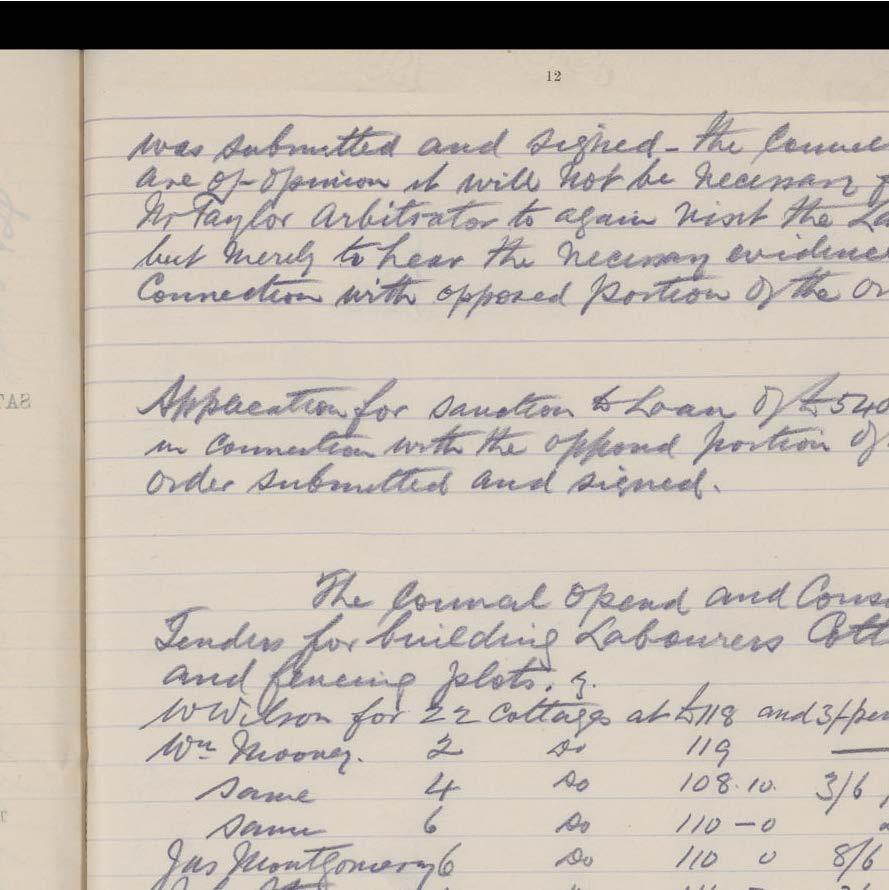 12
was submitted and signed - the Counc
are of opinion it will not be necessary f
Mr Taylor Arbitrator to again visit the La
but merely to hear the necessary evidence
Connection with opposed portion of the Or
Application for sanction to Loan of £540
in connection with the opposed portion of
order submitted and signed.
The Council opend and Cons
Tenders for building Labourers Cott
and fencing plots.
W Wilson for 22 cottages at £118 and 3/- per
Wm Mooney. 2 Do 119 —
Same 4 Do 108.10. 3/6
Same 6 Do 110 - 0
Jas Montgomery 6 Do 110 0 8/6